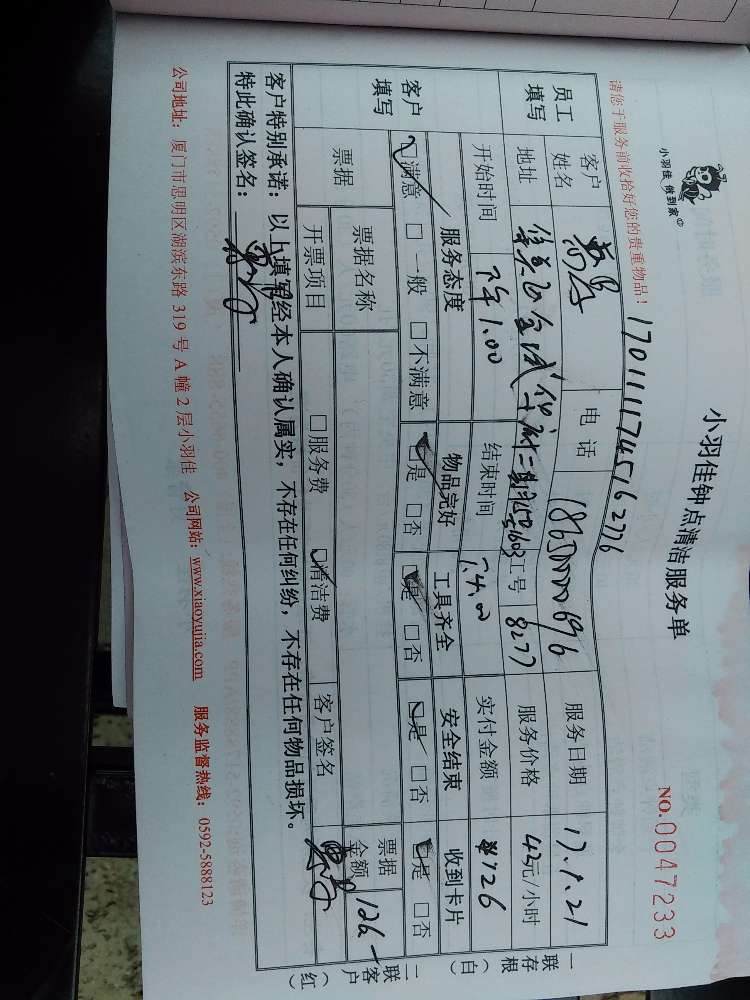 小羽佳 做到家
小羽佳钟点清洁服务单
NO.0047233
请您于服务前收拾好您的贵重物品！
1701111745162776
员工填写
客户姓名
电话
服务日期 17.1.21
地址
工号 8277
服务价格 42元/小时
开始时间 下午1.00
结束时间 下4.00
实付金额 ¥126
客户填写
服务态度 物品完好 工具齐全 安全结束 收到卡片
☑满意 □一般 □不满意 ☑是 □否 ☑是 □否 ☑是 □否 ☑是 □否
票据
票据名称
票据金额 126
开票项目 □服务费 ☑清洁费 客户签名
客户特别承诺：以上填写经本人确认属实，不存在任何纠纷，不存在任何物品损坏。
特此确认签名：
公司地址：厦门市思明区湖滨东路 319 号 A 幢 2 层小羽佳 公司网站：www.xiaoyujia.com 服务监督热线：0592-5888123
一存根（白）联
二客户（红）联